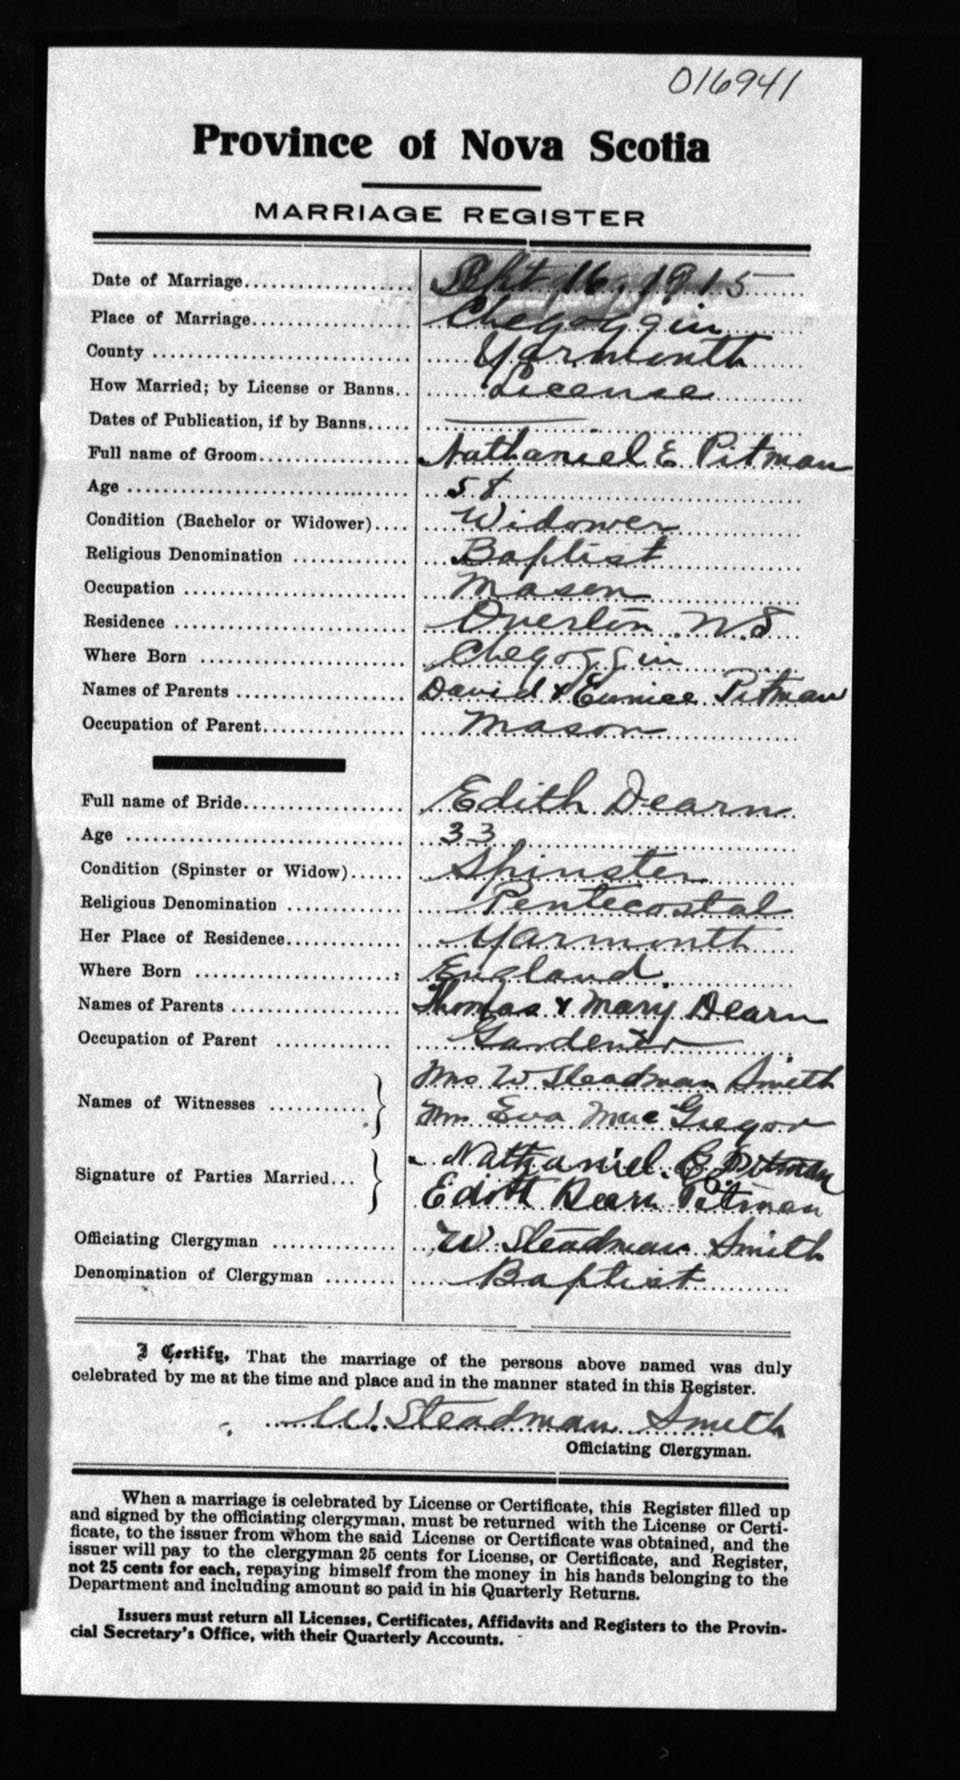 016941
Province of Nova Scotia
MARRIAGE REGISTER
Date of Marriage.................... Sept 16, 1915
Place of Marriage................... Chegoggin
County .............................. Yarmouth
How Married; by License or Banns.. License
Dates of Publication, if by Banns..... ———
Full name of Groom.................. Nathaniel E Pitman
Age ................................. 58
Condition (Bachelor or Widower).... Widower
Religious Denomination ............. Baptist
Occupation .......................... Mason
Residence ........................... Overton N.S
Where Born ......................... Chegoggin
Names of Parents .................... David & Eunice Pitman
Occupation of Parent................. Mason
Full name of Bride................... Edith Dearn
Age ................................. 33
Condition (Spinster or Widow)...... Spinster
Religious Denomination ............. Pentecostal
Her Place of Residence.............. Yarmouth
Where Born ......................... England.
Names of Parents .................... Thomas & Mary Dearn
Occupation of Parent ............... Gardener
Mrs W Steadman Smith
Names of Witnesses ...........
Mrs Eva MacGregor
Nathaniel E Pitman
Signature of Parties Married...
Edith Dearn Pitman
Officiating Clergyman .............. W Steadman Smith
Denomination of Clergyman ........ Baptist
I Certify, That the marriage of the persons above named was duly
celebrated by me at the time and place and in the manner stated in this Register.
W. Steadman Smith
Officiating Clergyman.
When a marriage is celebrated by License or Certificate, this Register filled up
and signed by the officiating clergyman, must be returned with the License or Certi-
ficate, to the issuer from whom the said License or Certificate was obtained, and the
issuer will pay to the clergyman 25 cents for License, or Certificate, and Register,
not 25 cents for each, repaying himself from the money in his hands belonging to the
Department and including amount so paid in his Quarterly Returns.
Issuers must return all Licenses, Certificates, Affidavits and Registers to the Provin-
cial Secretary's Office, with their Quarterly Accounts.